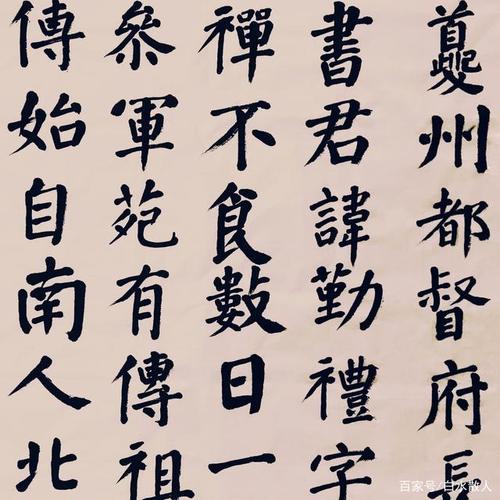 夔州都督府長
書君諱勤禮字
禪不食數日一
叅軍苑有傳祖
傳始自南人北
百家号/白水散人